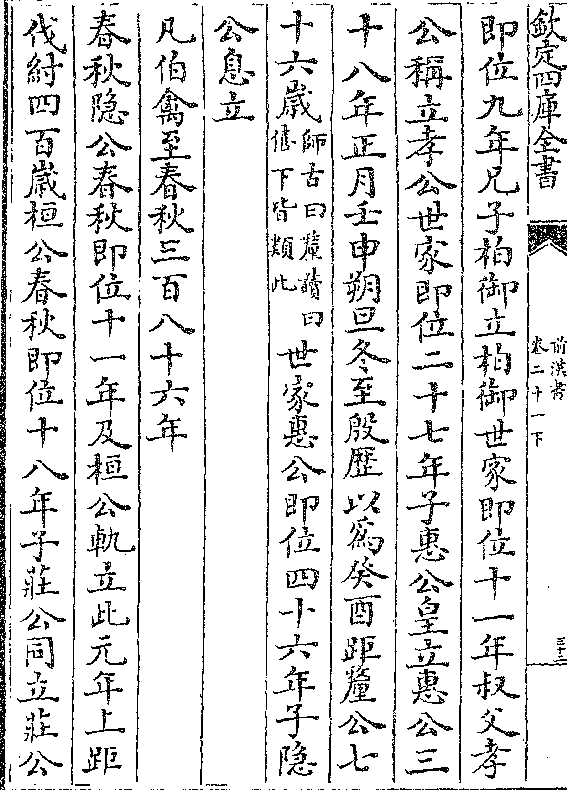 欽定四庫全書
前漢書
卷二十一下
三十三
即位九年兄子柏御立柏御世家即位十一年叔父孝
公稱立孝公世家即位二十七年子惠公皇立惠公三
十八年正月壬申朔旦冬至殷歷以為癸酉距釐公七
十六歲師古曰釐讀曰
僖下皆類此世家惠公即位四十六年子隐
公息立
凡伯禽至春秋三百八十六年
春秋隐公春秋即位十一年及桓公軌立此元年上距
伐紂四百歲桓公春秋即位十八年子莊公同立莊公